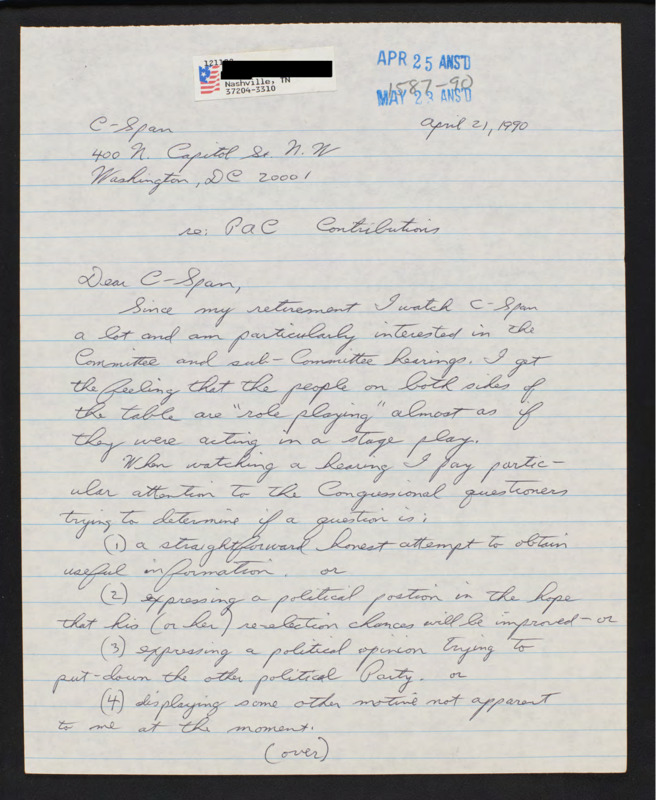 APR 25 ANS'D
1587-90
MAY 23 ANS'D
Nashville, TN
37204-3310
C-Span
April 21, 1990
400 N. Capitol St. N.W
Washington, DC 20001
re: PAC Contributions
Dear C-Span,
Since my retirement I watch C-Span
a lot and am particularly interested in the
Committee and sub-Committee hearings. I get
the feeling that the people on both sides of
the table are "role playing" almost as if
they were acting in a stage play.
When watching a hearing I pay partic-
ular attention to the Congressional questioners
trying to determine if a question is:
(1) a straightforward honest attempt to obtain
useful information. or
(2) expressing a political postion in the hope
that his (or her) re-election chances will be improved - or
(3) expressing a political opinion trying to
put-down the other political Party. or
(4) displaying some other motive not apparent
to me at the moment.
(over)